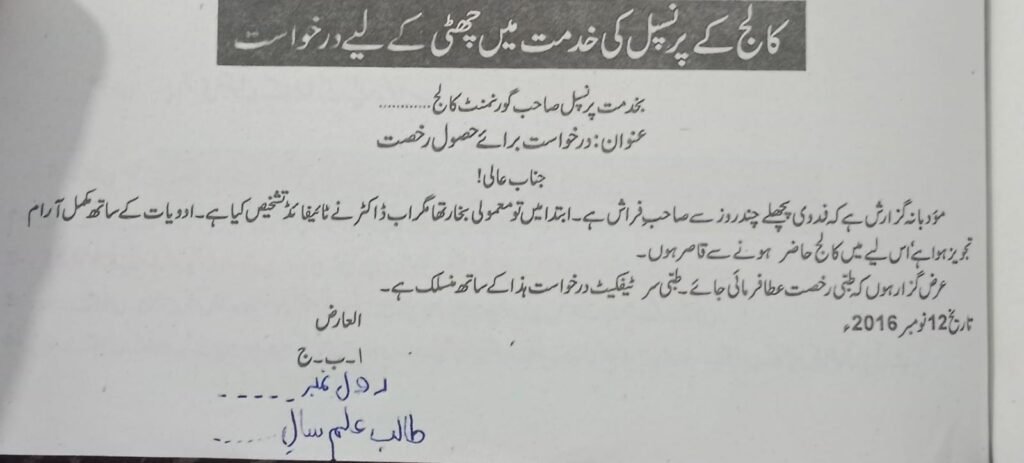 کالج کے پرنسپل کی خدمت میں چھٹی کے لیے درخواست
بخدمت پرنسپل صاحب گورنمنٹ کالج............
عنوان: درخواست برائے حصول رخصت
جناب عالی!
مؤدبانہ گزارش ہے کہ فدوی پچھلے چند روز سے صاحبِ فراش ہے۔ ابتدا میں تو معمولی بخار تھا مگر اب ڈاکٹر نے ٹائیفائڈ تشخیص کیا ہے۔ ادویات کے ساتھ مکمل آرام
تجویز ہوا ہے' اس لیے میں کالج حاضر ہونے سے قاصر ہوں۔
عرض گزار ہوں کہ طبّی رخصت عطا فرمائی جائے۔ طبّی سرٹیفکیٹ درخواست ہذا کے ساتھ منسلک ہے۔
تاریخ 12 نومبر 2016ء
العارض
ا۔ب۔ج
رول نمبر -----
طالب علم سالِ ......